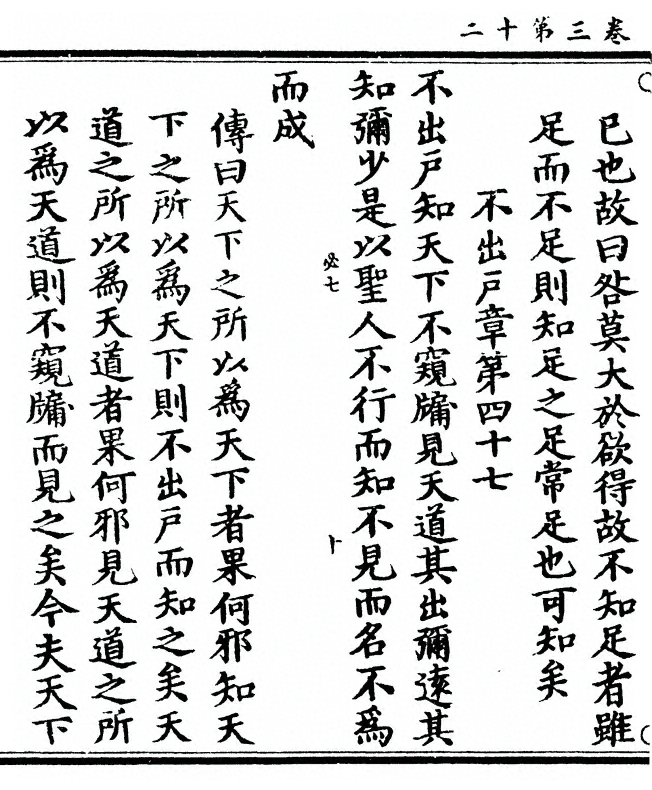 卷三第十二
已也故曰咎莫大於欲得故不知足者雖
足而不足則知足之足常足也可知矣
不出戸章第四十七
不出戸知天下不窺牗見天道其出彌遠其
知彌少是以聖人不行而知不見而名不爲
必七
卜
而成
傳曰天下之所以爲天下者果何邪知天
下之所以爲天下則不出戸而知之矣天
道之所以爲天道者果何邪見天道之所
以爲天道則不窺牗而見之矣今夫天下